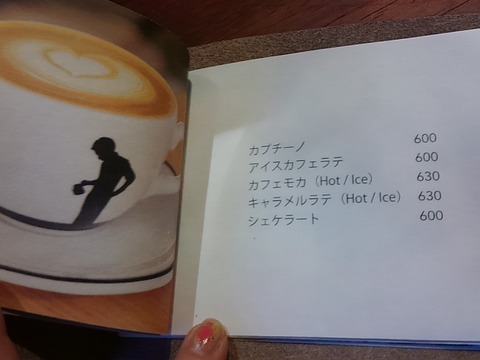 カプチーノ 600
アイスカフェラテ 600
カフェモカ（Hot / Ice） 630
キャラメルラテ（Hot / Ice） 630
シェケラート 600